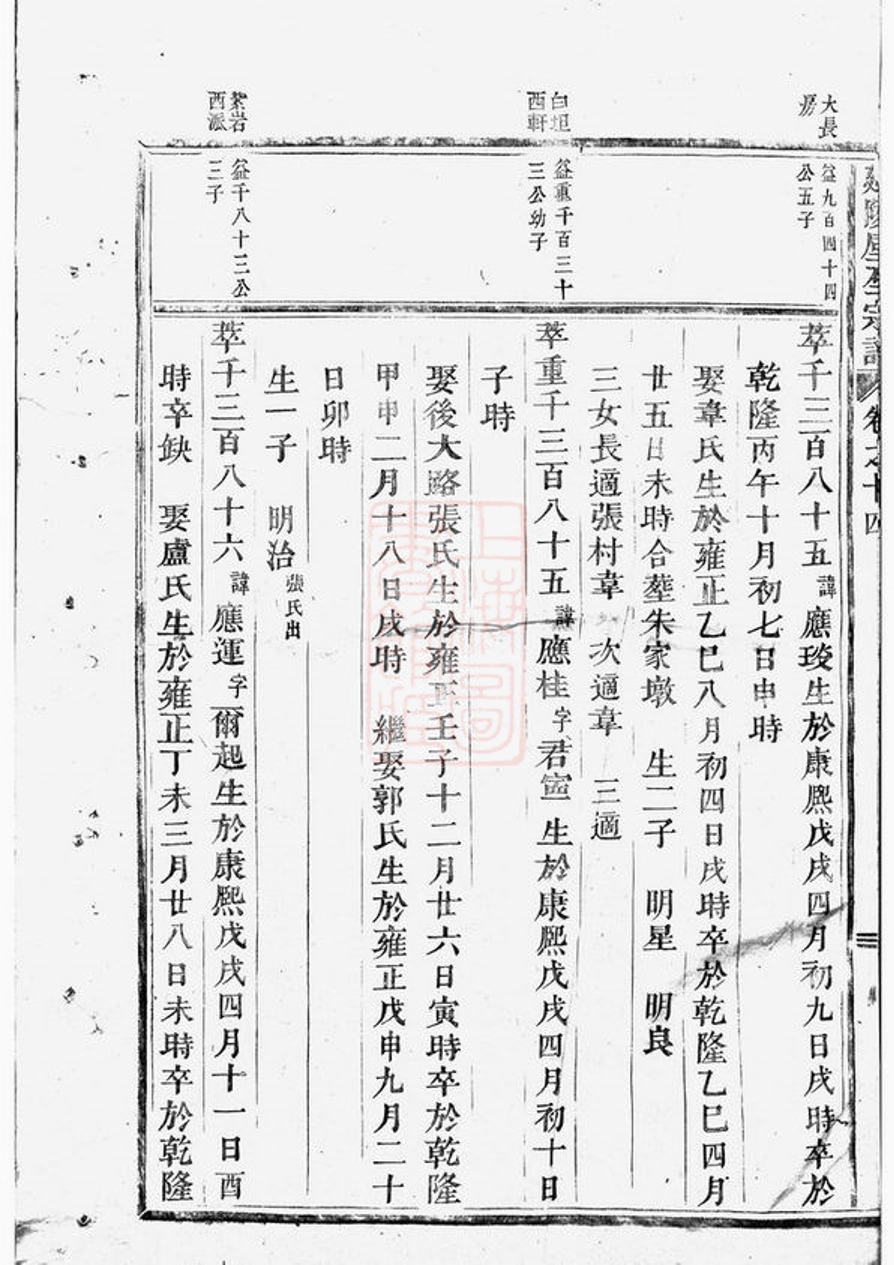 大長房
益九百四十四公五子
萃千三百八十五諱應琰生於康熙戊戌四月初九日戌時卒於
乾隆丙午十月初七日申時
娶韋氏生於雍正乙巳八月初四日戌時卒於乾隆乙巳四月
廿五日未時合塟朱家墩　生二子　明星　明良
三女長適張村韋　次適韋　三適
白坦西軒
益重千百三十三公幼子
萃重千三百八十五諱應桂字君寍生於康熙戊戌四月初十日
子時
娶後大路張氏生於雍正壬子十二月廿六日寅時卒於乾隆
甲申二月十八日戌時　繼娶郭氏生於雍正戊申九月二十
日卯時
生一子　明治張氏出
紫岩西派
益千八十三公三子
萃千三百八十六諱應運字爾起生於康熙戊戌四月十一日酉
時卒缺　娶盧氏生於雍正丁未三月廿八日未時卒於乾隆
宗譜
卷之十四
三